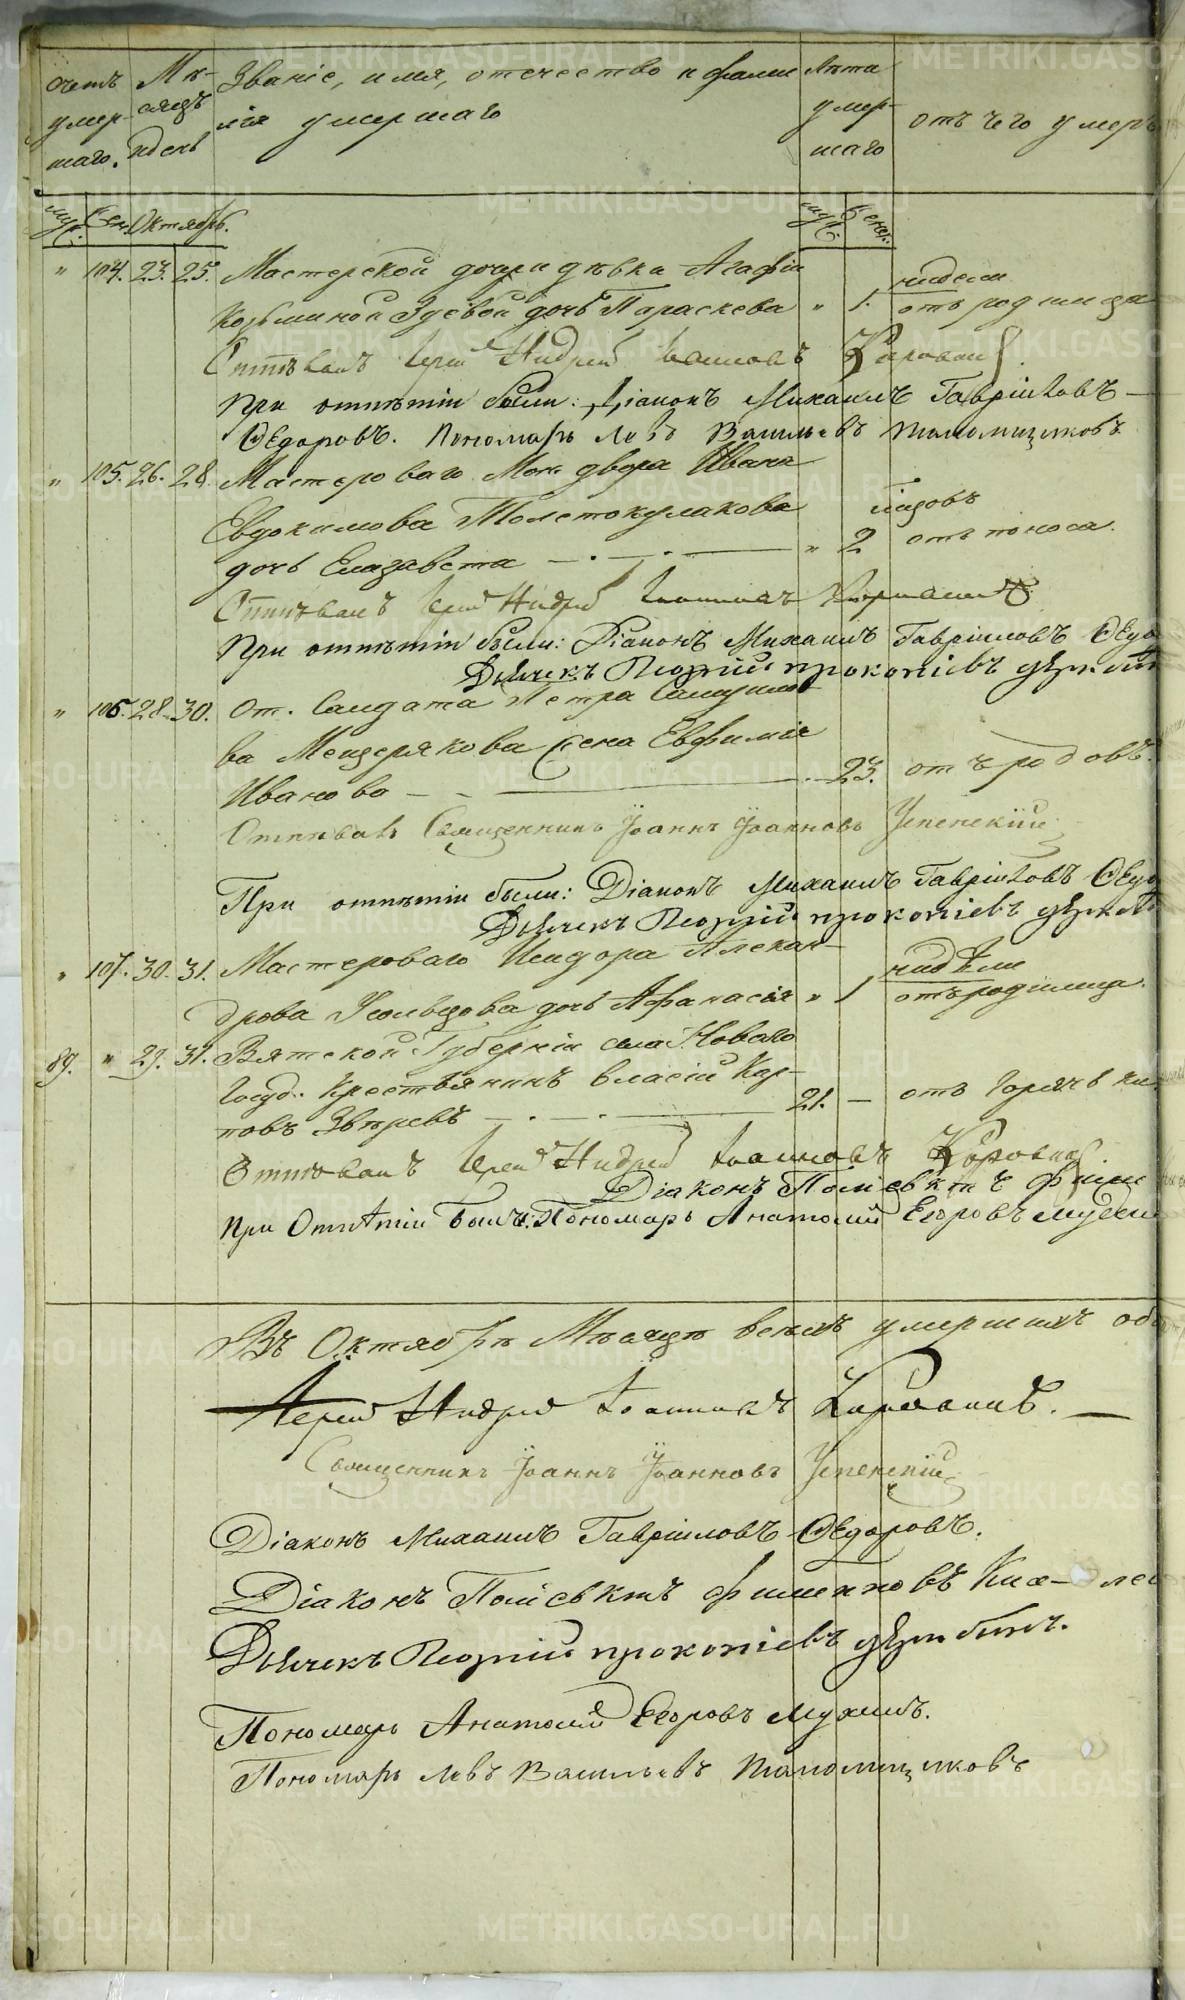 счетъ Мѣ- Званіе, имя, отечество и фами Лѣта
умер- сяцъ лія умершаго умер- отъ чего умеръ
шаго. и день шаго
муж. жен. Октябрь. муж. женс.
" 104. 23. 25. Мастерской дочери дѣвки Агафіи недели
Козьминой Зуевой дочь Параскева " 1. отъ родимца
Отпѣвалъ Іерей Андрей Іоанновъ
При отпѣтіи были: Діаконъ Михаилъ Гавріиловъ
Ѳедоровъ. Пономарь Левъ Васильевъ
" 105. 26. 28. Мастероваго Мон. двора Ивана
Евдокимова Толстокулакова годовъ
дочь Елизавета " 2 отъ поноса.
Отпѣвалъ Іерей Андрей Іоанновъ
При отпѣтіи были: Діаконъ Михаилъ Гавріиловъ Ѳедо
Дьячекъ Георгій Прокопіевъ
" 106. 28. 30. От. Салдата Петра Самуило
ва Мещерякова жена Евфимія
Иванова 23. отъ родовъ.
Отпѣвалъ Священникъ Іоаннъ Іоанновъ Успенскій
При отпѣтіи были: Діаконъ Михаилъ Гавріиловъ Ѳедо
Дьячекъ Георгій Прокопіевъ
" 107. 30. 31. Мастероваго Исидора Алексан- недѣли
дрова Усольцова дочь Афанасія " 1 отъ родимца.
89. " 29. 31. Вятской Губерніи села Новаго
Госуд. Крестьянинъ Власій Кар-
повъ Звѣревъ 21. — отъ Горячки
Отпѣвалъ Іерей Андрей Іоанновъ
Діаконъ Поліевктъ Филим
При Отпѣтіи Былъ: Пономарь Анатолій Егоровъ
Въ Октябрѣ Мѣсяцѣ всѣхъ умершихъ об
Іерей Андрей Іоанновъ
Священникъ Іоаннъ Іоанновъ Успенскій
Діаконъ Михаилъ Гавріиловъ Ѳедоровъ.
Діаконъ Поліевктъ
Дьячекъ Георгій Прокопіевъ
Пономарь Анатолій Егоровъ Мухинъ.
Пономарь Левъ Васильевъ
METRIKI.GASO-URAL.RU